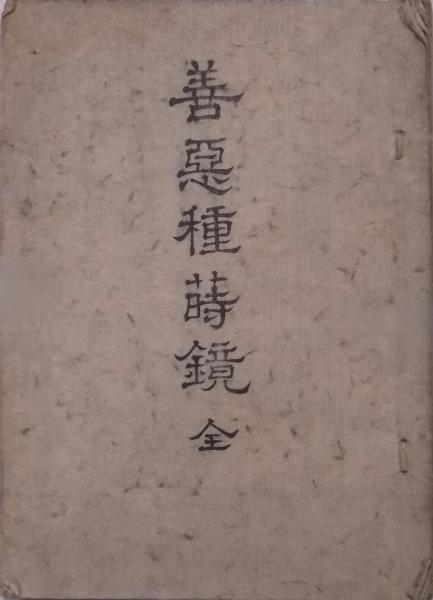 善惡種蒔鏡 全